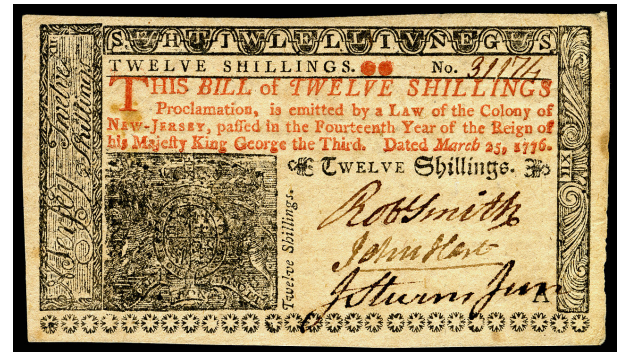 TWELVE SHILLINGS. No. 31174
THIS BILL of TWELVE SHILLINGS
Proclamation, is emitted by a LAW of the Colony of
NEW-JERSEY, paſſed in the Fourteenth Year of the Reign of
his Majeſty King George the Third. Dated March 25, 1776.
TWELVE Shillings.
Twelve Shillings.
Rob Smith
John Hart
J Sturns Jun
A
XII